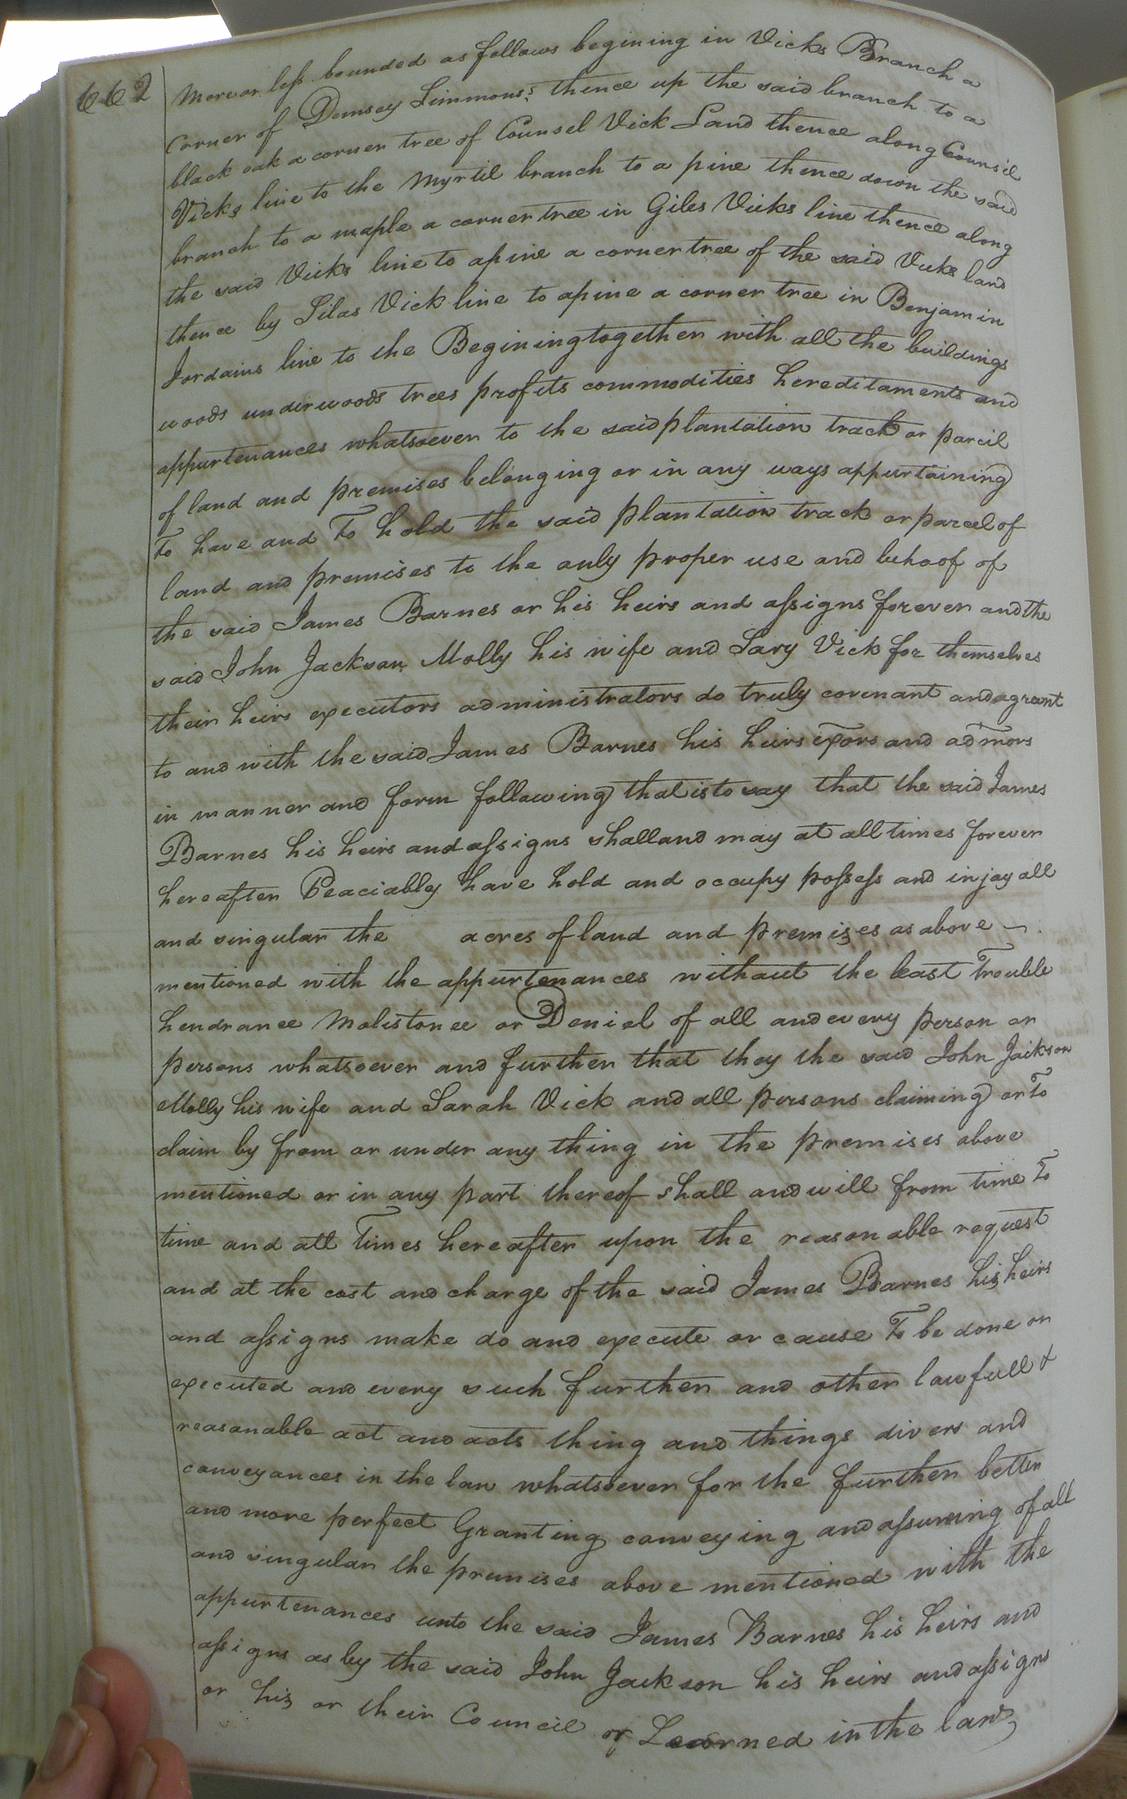 662
More or less bounded as follows begining in Vicks Branch a
Corner of Demsey Simmons's thence up the said branch to a
black oak a corner tree of Counsel Vick Land thence along Counsil
Vicks line to the Myrtil branch to a pine thence down the said
branch to a maple a corner tree in Giles Vicks line thence along
the said Vicks line to a pine a corner tree of the said Vicks land
thence by Silas Vick line to a pine a corner tree in Benjamin
Jordains line to the Begining together with all the buildings
woods underwoods trees profits commodities hereditaments and
appurtenances whatsoever to the said plantation track or parcil
of land and premises belonging or in any ways appurtaining
To have and To hold the said plantation track or parcel of
land and premises to the only proper use and behoof of
the said James Barnes or his heirs and assigns forever and the
said John Jackson Molly his wife and Sary Vick for themselves
their heirs executors administrators do truly covenant and agreant
to and with the said James Barnes his heirs exors and admors
in manner and form following that is to say that the said James
Barnes his heirs and assigns shall and may at all times forever
hereafter Peaciably have hold and occupy possess and injoy all
and singular the acres of land and premises as above
mentioned with the appurtenances without the least Trouble
hendrance Molistonce or Deniel of all and every person or
persons whatsoever and further that they the said John Jackson
Molly his wife and Sarah Vick and all persons claiming or To
claim by from or under any thing in the premises above
mentioned or in any part thereof shall and will from time To
time and att Times hereafter upon the reasonable request
and at the cost and charge of the said James Barnes his heirs
and assigns make do and execute or cause To be done or
executed and every such further and other lawfull &
reasonable act and acts thing and things divers and
conveyances in the law whatsoever for the further better
and more perfect Granting conveying and assurring of all
and singular the premises above mentioned with the
appurtenances unto the said James Barnes his heirs and
assigns as by the said John Jackson his heirs and assigns
or his or their Council or Learned in the law